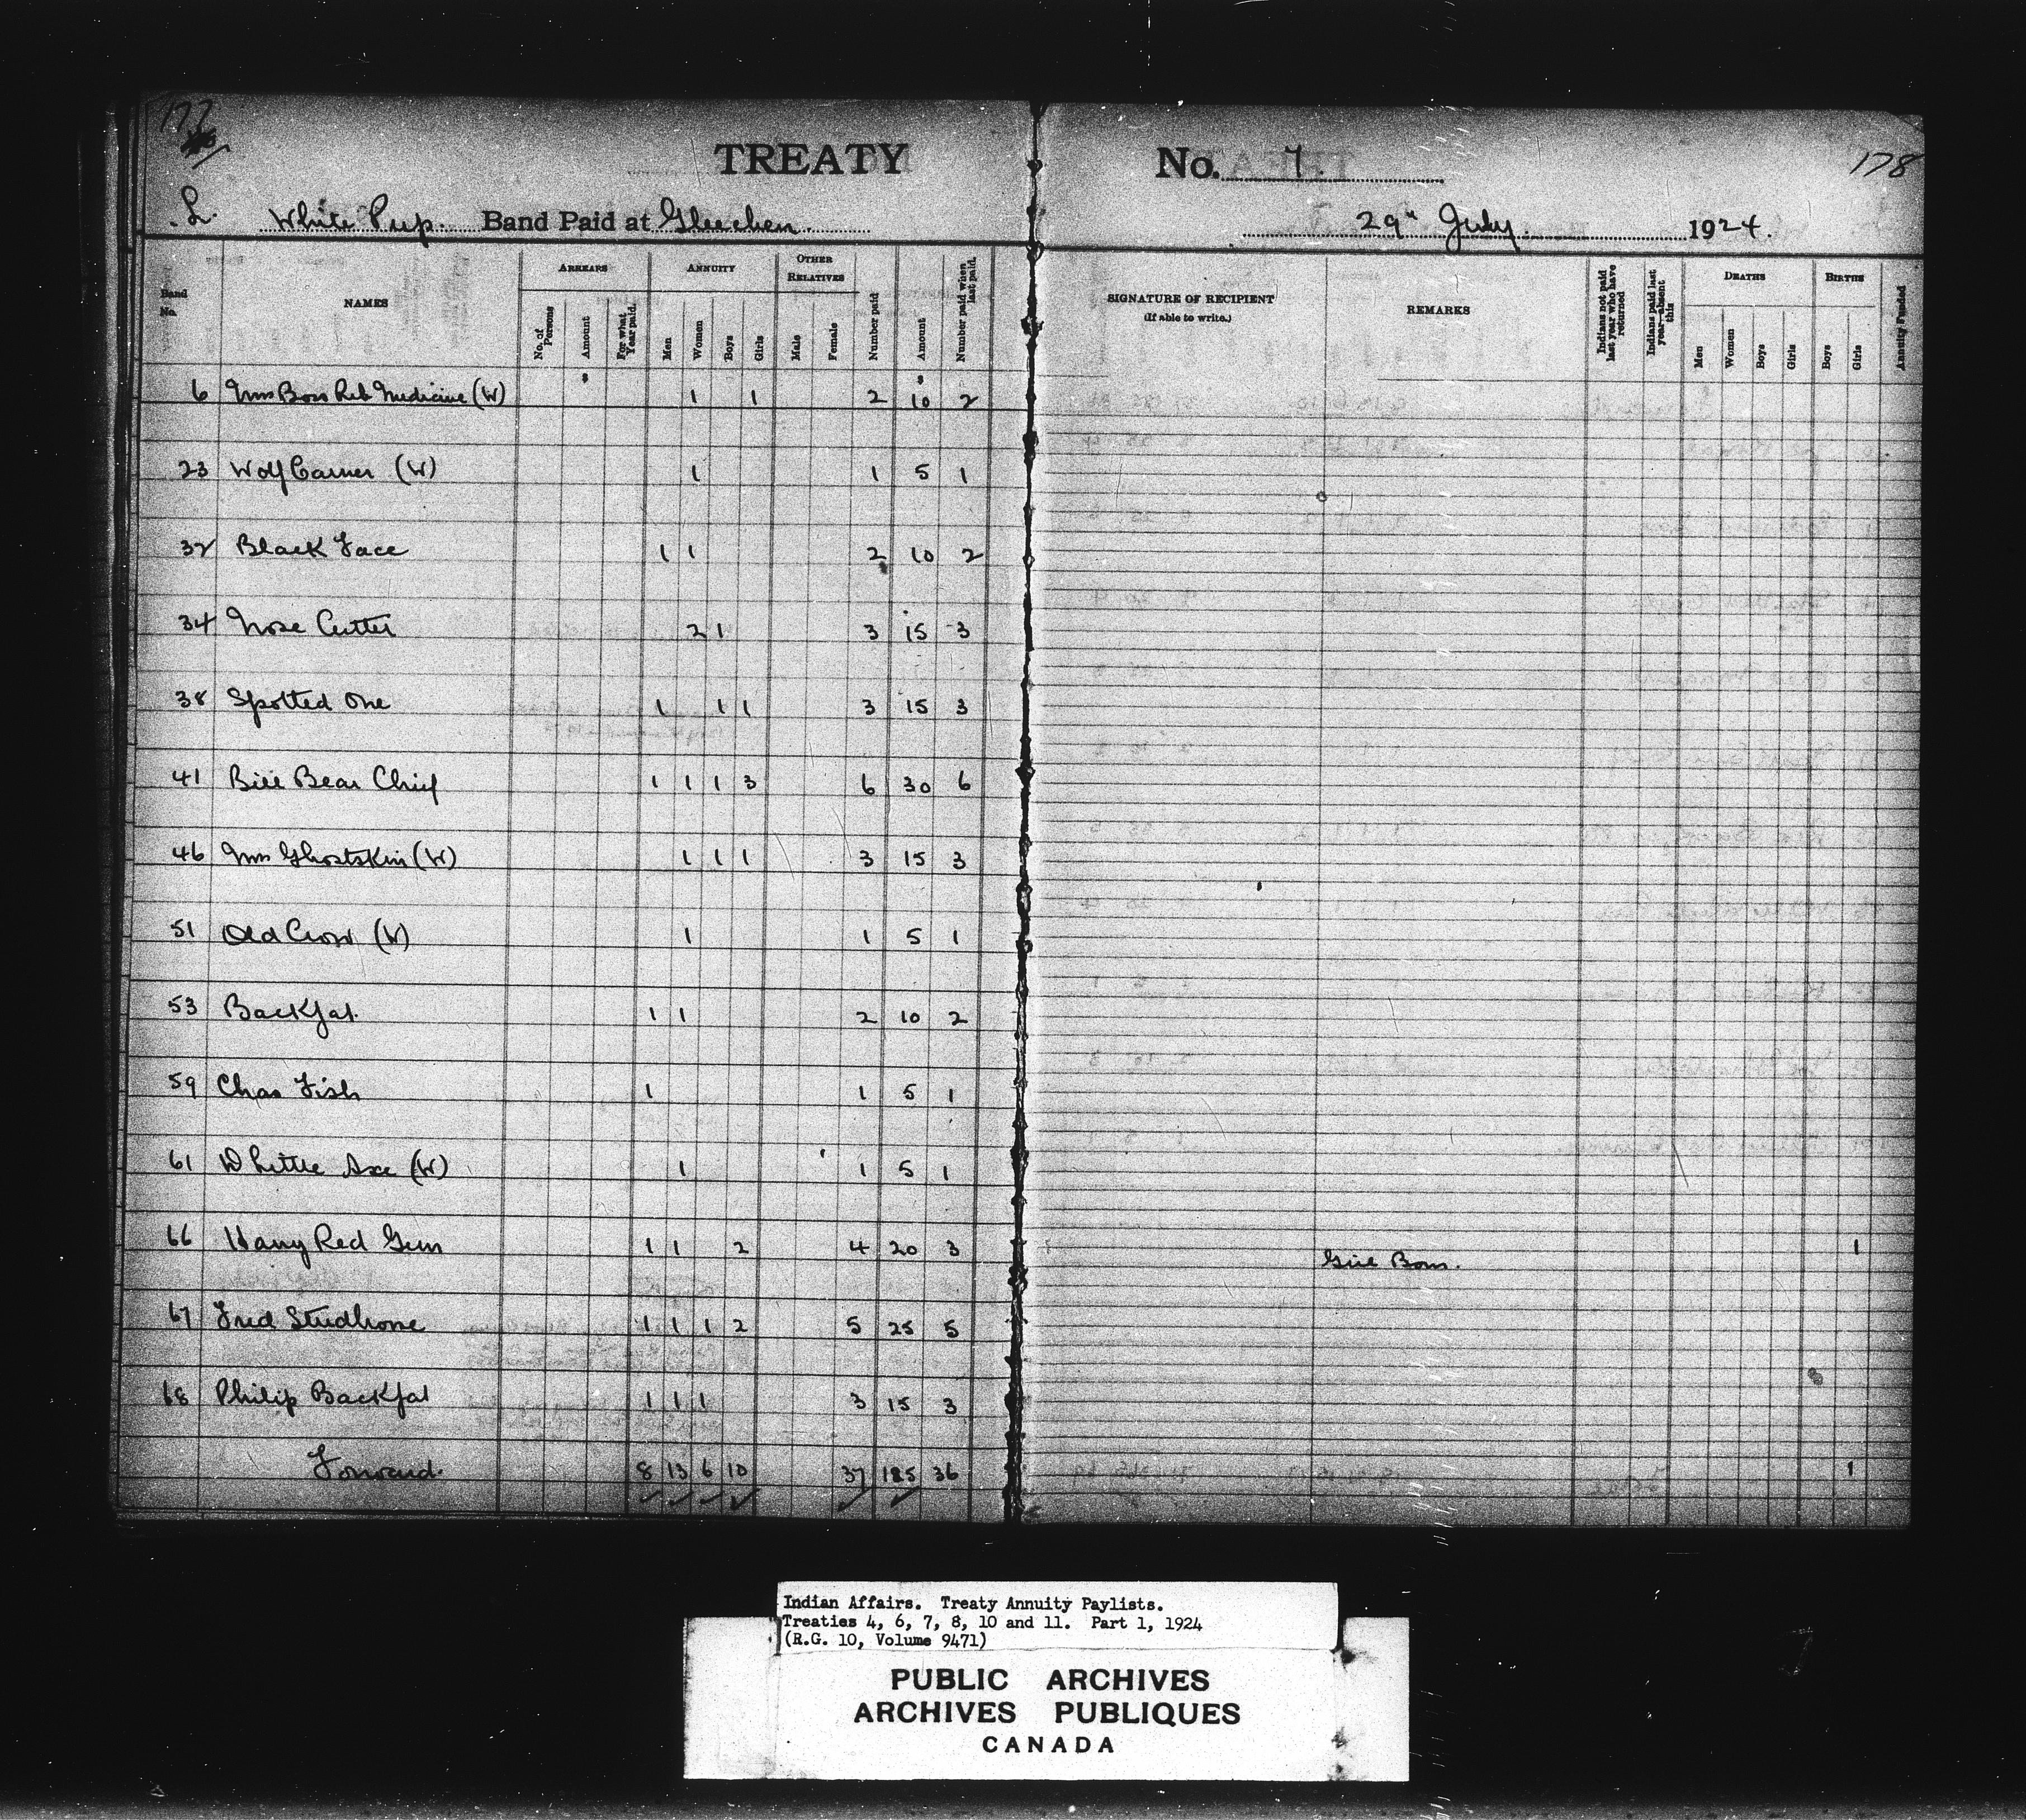 177 178
TREATY No. 7.
L. White Pup. Band Paid at Gleichen. 29th July. 1924.
Band No. NAMES ARREARS ANNUITY OTHER RELATIVES Number paid Amount Number paid when last paid. SIGNATURE OF RECIPIENT (If able to write.) REMARKS Indians not paid last year who have returned Indians paid last year—absent this DEATHS BIRTHS Annuity Funded
No. of Persons Amount For what Year paid. Men Women Boys Girls Male Female Men Women Boys Girls Boys Girls
6 Mrs Boss Rib Medicine (W) 1 1 2 10 2
23 Wolf Carrier (W) 1 1 5 1
32 Black Face 1 1 2 10 2
34 Nose Cutter 2 1 3 15 3
38 Spotted One 1 1 1 3 15 3
41 Bill Bear Chief 1 1 1 3 6 30 6
46 Mrs Ghostskin (W) 1 1 1 3 15 3
51 Old Crow (W) 1 1 5 1
53 Backfat. 1 1 2 10 2
59 Chas Fish 1 1 5 1
61 Whittle Axe (W) 1 1 5 1
66 Harry Red Gun 1 1 2 4 20 3 Girl Born. 1
67 Fred Studhorse 1 1 1 2 5 25 5
68 Philip Backfat 1 1 1 3 15 3
Forward. 8 13 6 10 37 185 36 1
Indian Affairs. Treaty Annuity Paylists.
Treaties 4, 6, 7, 8, 10 and 11. Part 1, 1924
(R.G. 10, Volume 9471)
PUBLIC ARCHIVES
ARCHIVES PUBLIQUES
CANADA